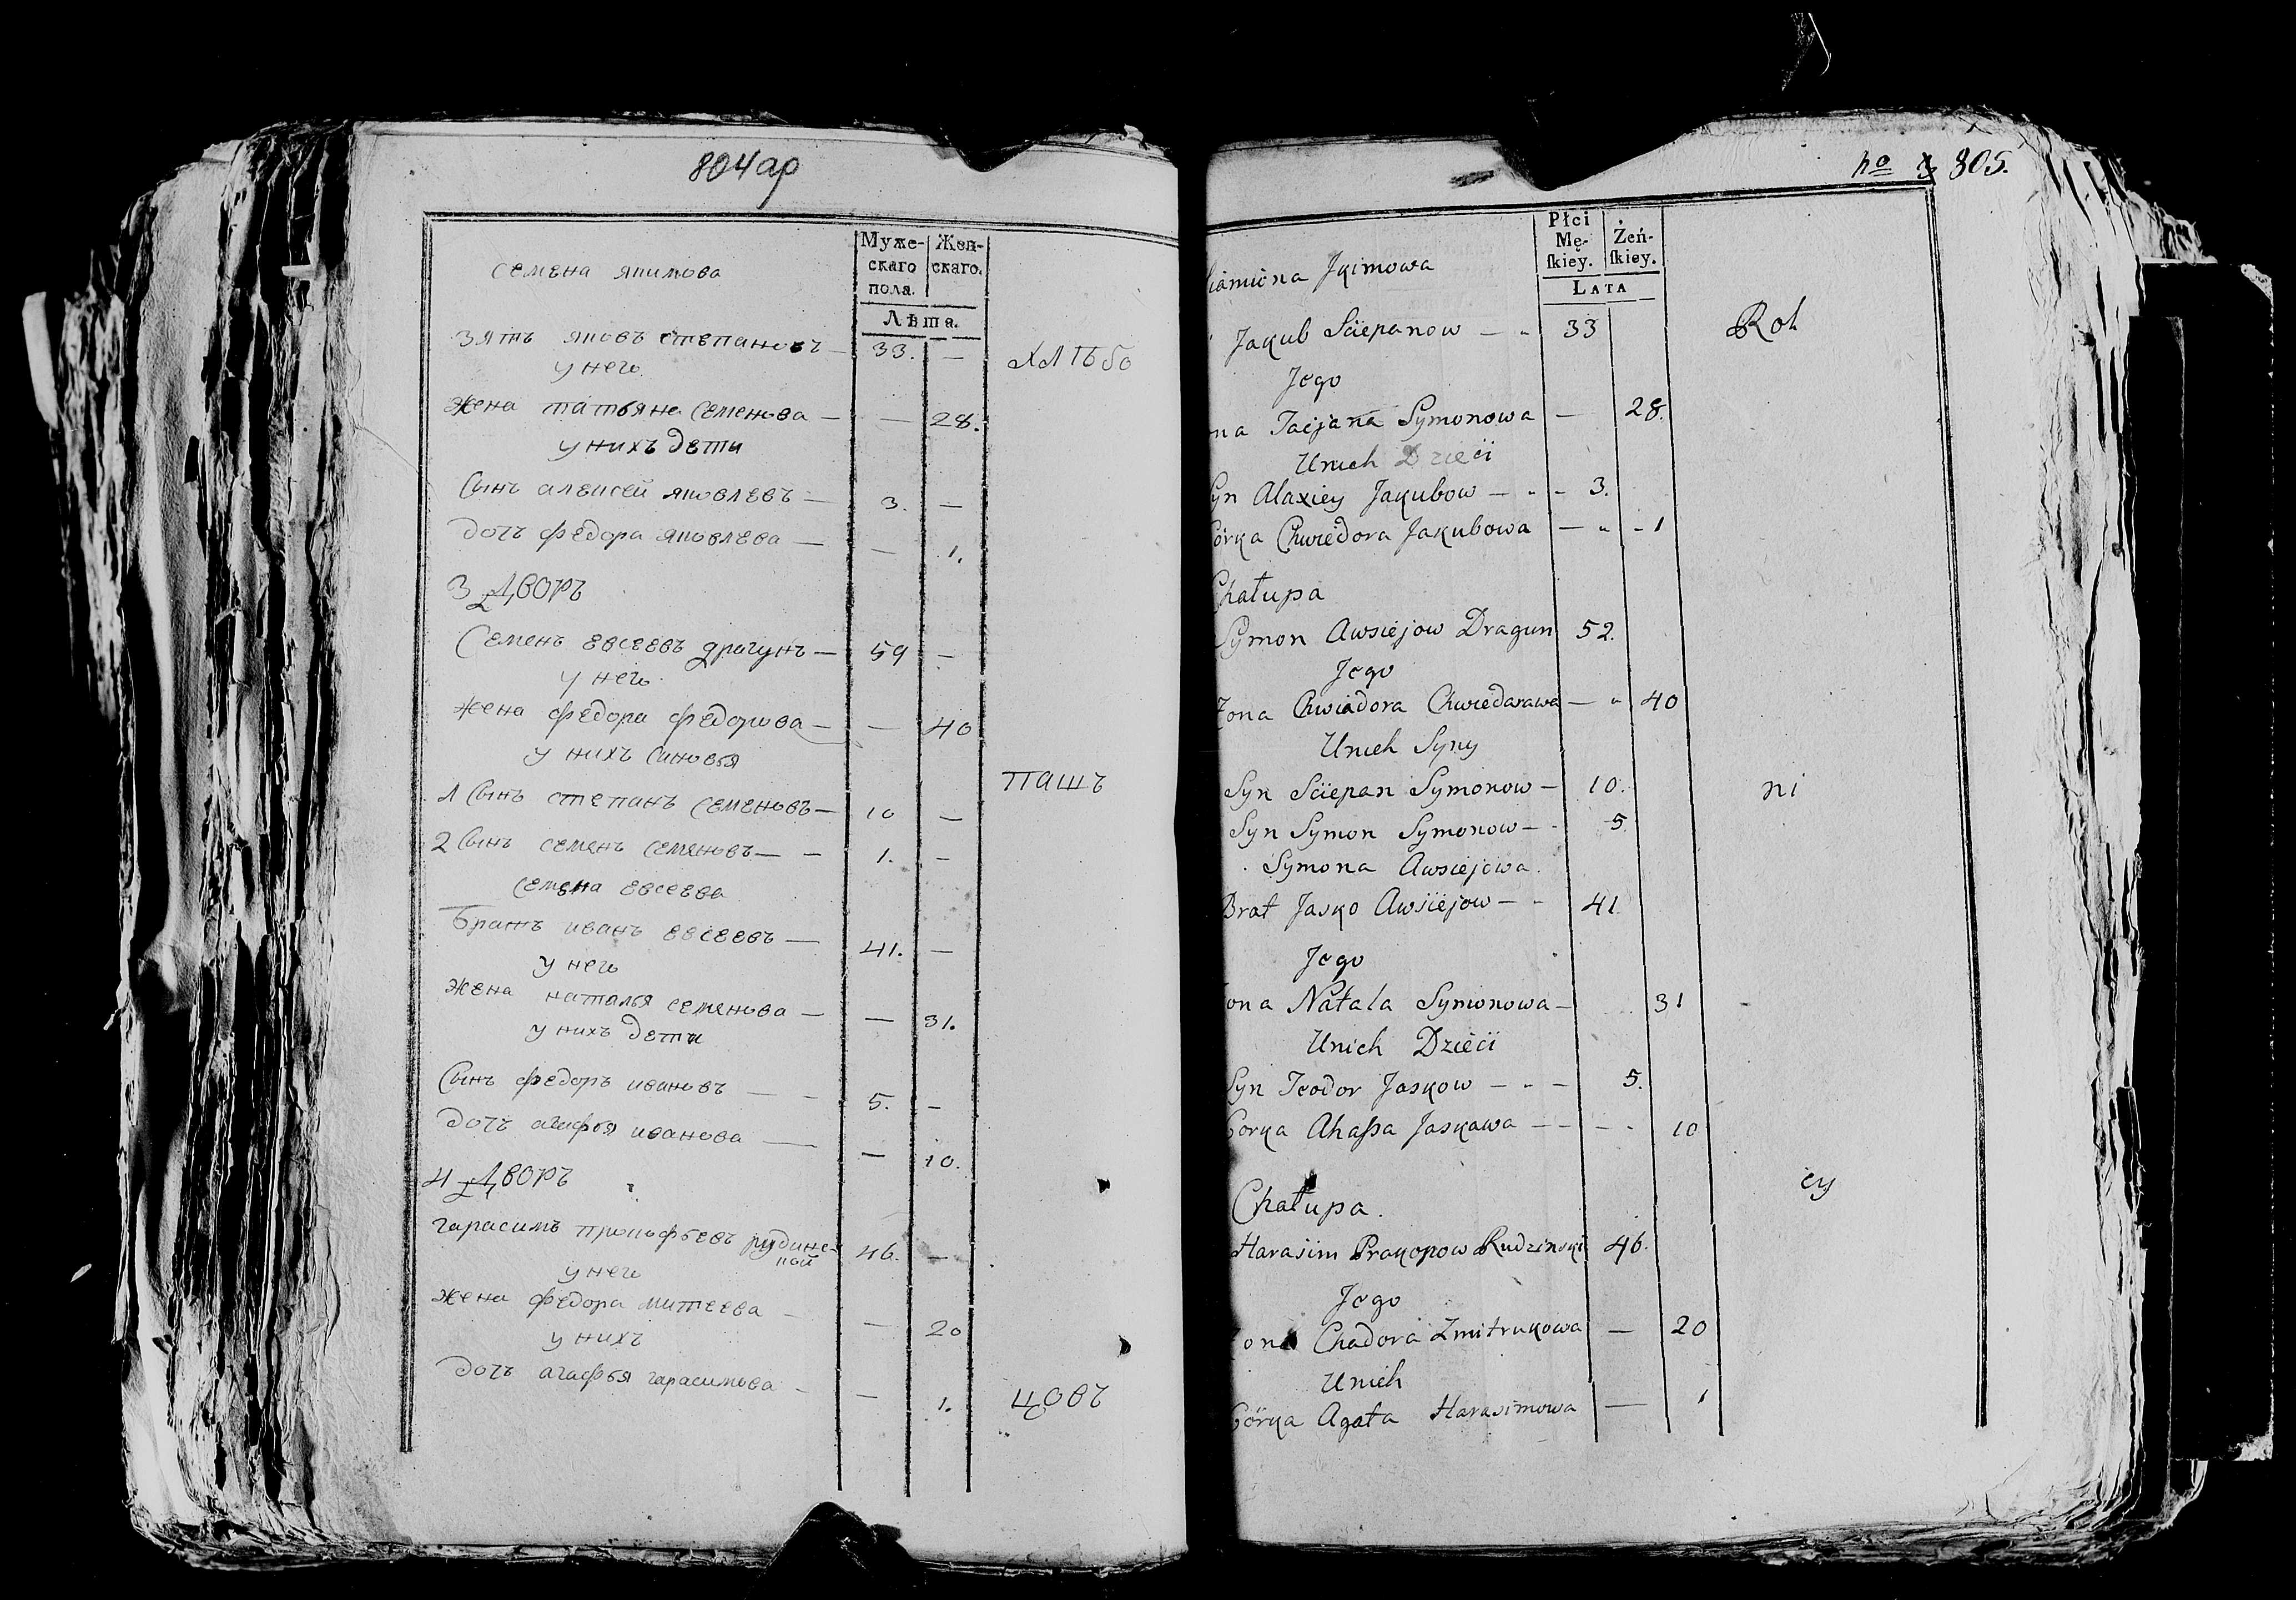 804 ар
Муже-
скаго
пола.
Жен-
скаго.
Лѣта.
семена якимова
зять яковъ степановъ — 33. —
у него
жена татьяна семенова — — 28.
у нихъ дети
сынъ алексей яковлевъ — 3. —
дочъ федора яковлева — — 1.
3 Дворъ
Семенъ евсеевъ драгунъ — 59 —
у него
жена федора федорова — — 40
у нихъ синовья
1 сынъ степанъ семеновъ — 10 —
2 сынъ семенъ семеновъ — — 1. —
семена евсеева
братъ иванъ евсеевъ — 41. —
у него
жена наталья семенова — — 31.
у нихъ дети
сынъ федоръ ивановъ — - 5. —
дочъ агафья иванова — — 10.
4 Дворъ
гарасимъ прокофьевъ рудинс-
кой 46. —
у него
жена федора митеева - — 20
у нихъ
дочъ агафья гарасимова - — 1.
хлѣбо
пашъ
цовъ
no 805.
Płci
Mę-
ſkiey.
Żeń-
ſkiey.
Lata
Jkimowa
Jakub Sciepanow — - 33
Jego
Tacjana Symonowa — 28.
Unich Dzieci
Syn Alaxiey Jakubow — - - 3.
Córka Chwiedora Jakubowa — - - 1
Chałupa
Symon Awsiejow Dragun 52.
Jego
Żona Chwiadora Chwiedarawa — - 40
Unich Syny
Syn Sciepan Symonow — 10.
Syn Symon Symonow — - 5.
Symona Awsiejowa.
Brat Jasko Awsiejow — - 41.
Jego
Żona Natala Symonowa — 31
Unich Dzieci
Syn Teodor Jaskow — - — 5.
Córka Ahaſsa Jaskawa — — - - 10
Chałupa.
Harasim Prakopow Rudzinski 46.
Jego
Żona Chadora Zmitrukowa — 20
Unich
Córka Agata Harasimowa — 1
Rol
ni
cy